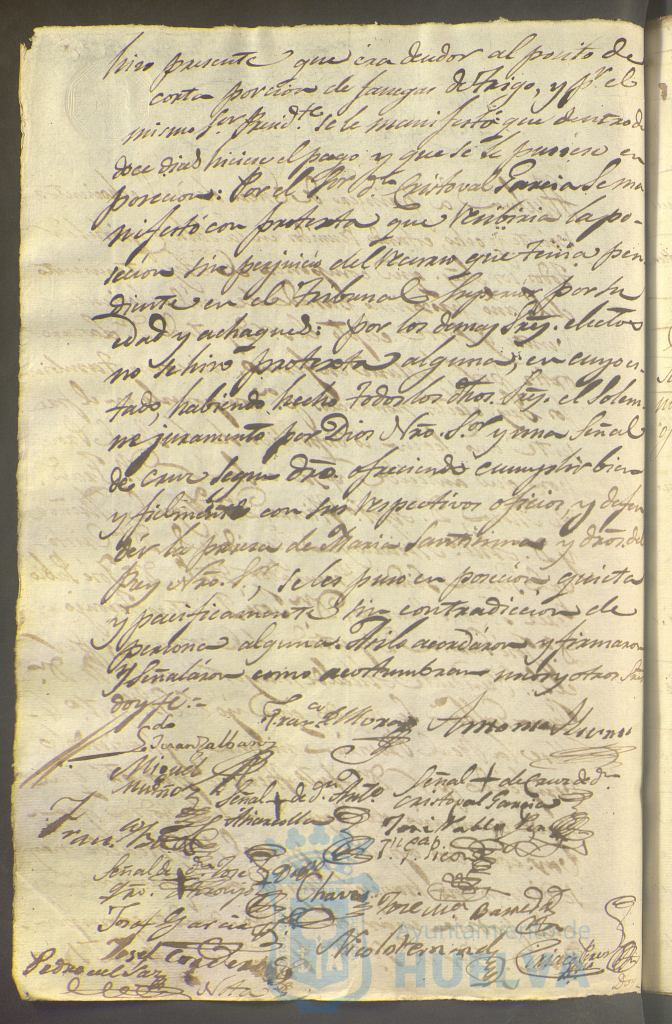 hizo presente que era deudor al posito de
corta porcion de fanegas de trigo, y pr. el
mismo Sr. Presidte. se le manifestó que dentro de
doce dias hiciese el pago y que se le pusiese en
posecion: Por el Cristoval Garcia Se ma-
nifestó con protexta que recibiria la po-
secion sin perjuicio del recurso que tenia pen
diente en el tribunal Superior por su
edad y achaques: por los demas Sres. electos
no se hizo protexta alguna, en cuyo es-
tado, habiendo hecho todos los dhos. Sres. el solem
ne juramento por Dios Nro. Sor. y una Señal
de cruz segun dro. ofreciendo cumplir bien
y fielmente con sus respectivos oficios, y defen
der la pureza de Maria Santisima y dros. del
Rey Nro. Sr., se les puso en posecion quieta
y pacificamente sin contradiccion de
persona alguna. Asilo acordaron y firmaron
y señalaron como acostumbran unos y otros
doy fé.=
Franco. Mora Antonio
Miguel
Muñoz
Señal + de dn. Anto.
Señal + de Cruz de dn.
Cristoval Garcia
José Pablo
Señal de dn. Jose
+
Diego Chaves
Josef Garcia
Jose
Josef
Nicolo Bernal
Pedro
Nota
Ayuntamiento de
HUELVA